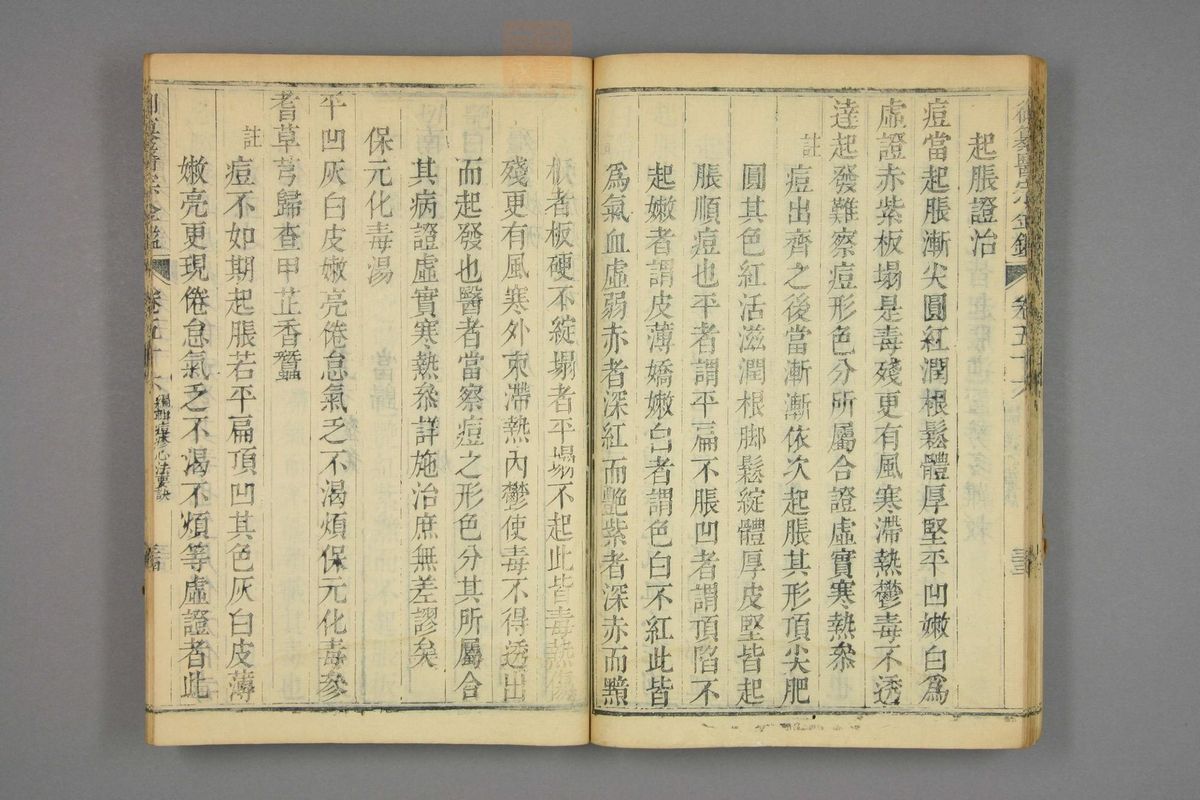 御纂醫宗金鑑 卷五十六
起脹證治
痘當起脹漸尖圓紅潤根鬆體厚堅平凹嫩白爲
虛證赤紫板塌是毒殘更有風寒滯熱鬱毒不透
達起發難察痘形色分所屬合證虛實寒熱叅
註
痘出齊之後當漸漸依次起脹其形頂尖肥
圓其色紅活滋潤根脚鬆綻體厚皮堅皆起
脹順痘也平者謂平扁不脹凹者謂頂陷不
起嫩者謂皮薄嬌嫩白者謂色白不紅此皆
爲氣血虛弱赤者深紅而艷紫者深赤而黯
根者板硬不綻塌者平塌不起此皆毒熱傷
殘更有風寒外束滯熱內鬱使毒不得透出
而起發也醫者當察痘之形色分其所屬合
其病證虛實寒熱叅詳施治庶無差謬矣
保元化毒湯
平凹灰白皮嫩亮倦怠氣乏不渴煩保元化毒參
耆草芎歸查甲芷香蠶
註
痘不如期起脹若平扁頂凹其色灰白皮薄
嫩亮更現倦怠氣乏不渴不煩等虛證者此
御纂醫宗金鑑 卷五十六 編輯痘疹心法要訣